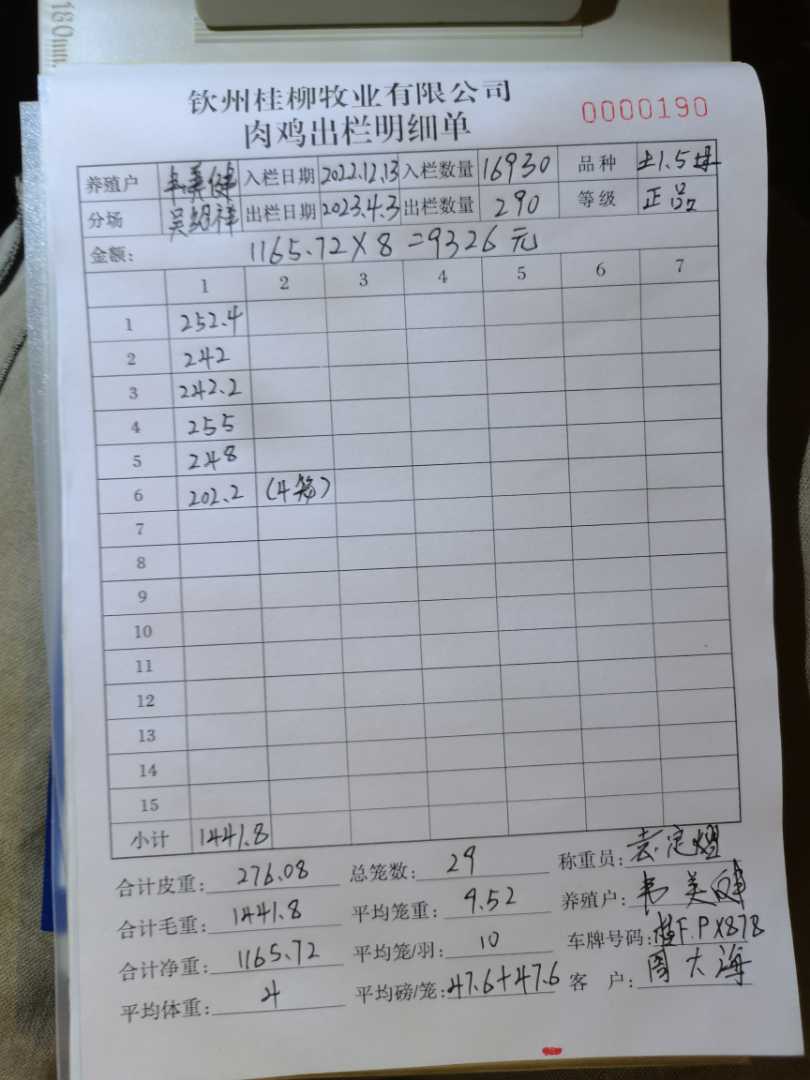 180mm
钦州桂柳牧业有限公司
肉鸡出栏明细单 0000190
养殖户 韦美健 入栏日期 2022.12.13 入栏数量 16930 品种 土1.5母
分场 出栏日期 2023.4.3 出栏数量 290 等级 正品
金额: 1165.72×8=9326元
1 2 3 4 5 6 7
1 252.4
2 242
3 242.2
4 255
5 248
6 202.2 (4笼)
7
8
9
10
11
12
13
14
15
小计 1441.8
合计皮重: 276.08 总笼数: 29 称重员: 袁定
合计毛重: 1441.8 平均笼重: 9.52 养殖户: 韦美健
合计净重: 1165.72 平均笼/羽: 10 车牌号码: 桂F.PX878
平均体重: 4 平均磅/笼: 47.6+47.6 客户: 周大海